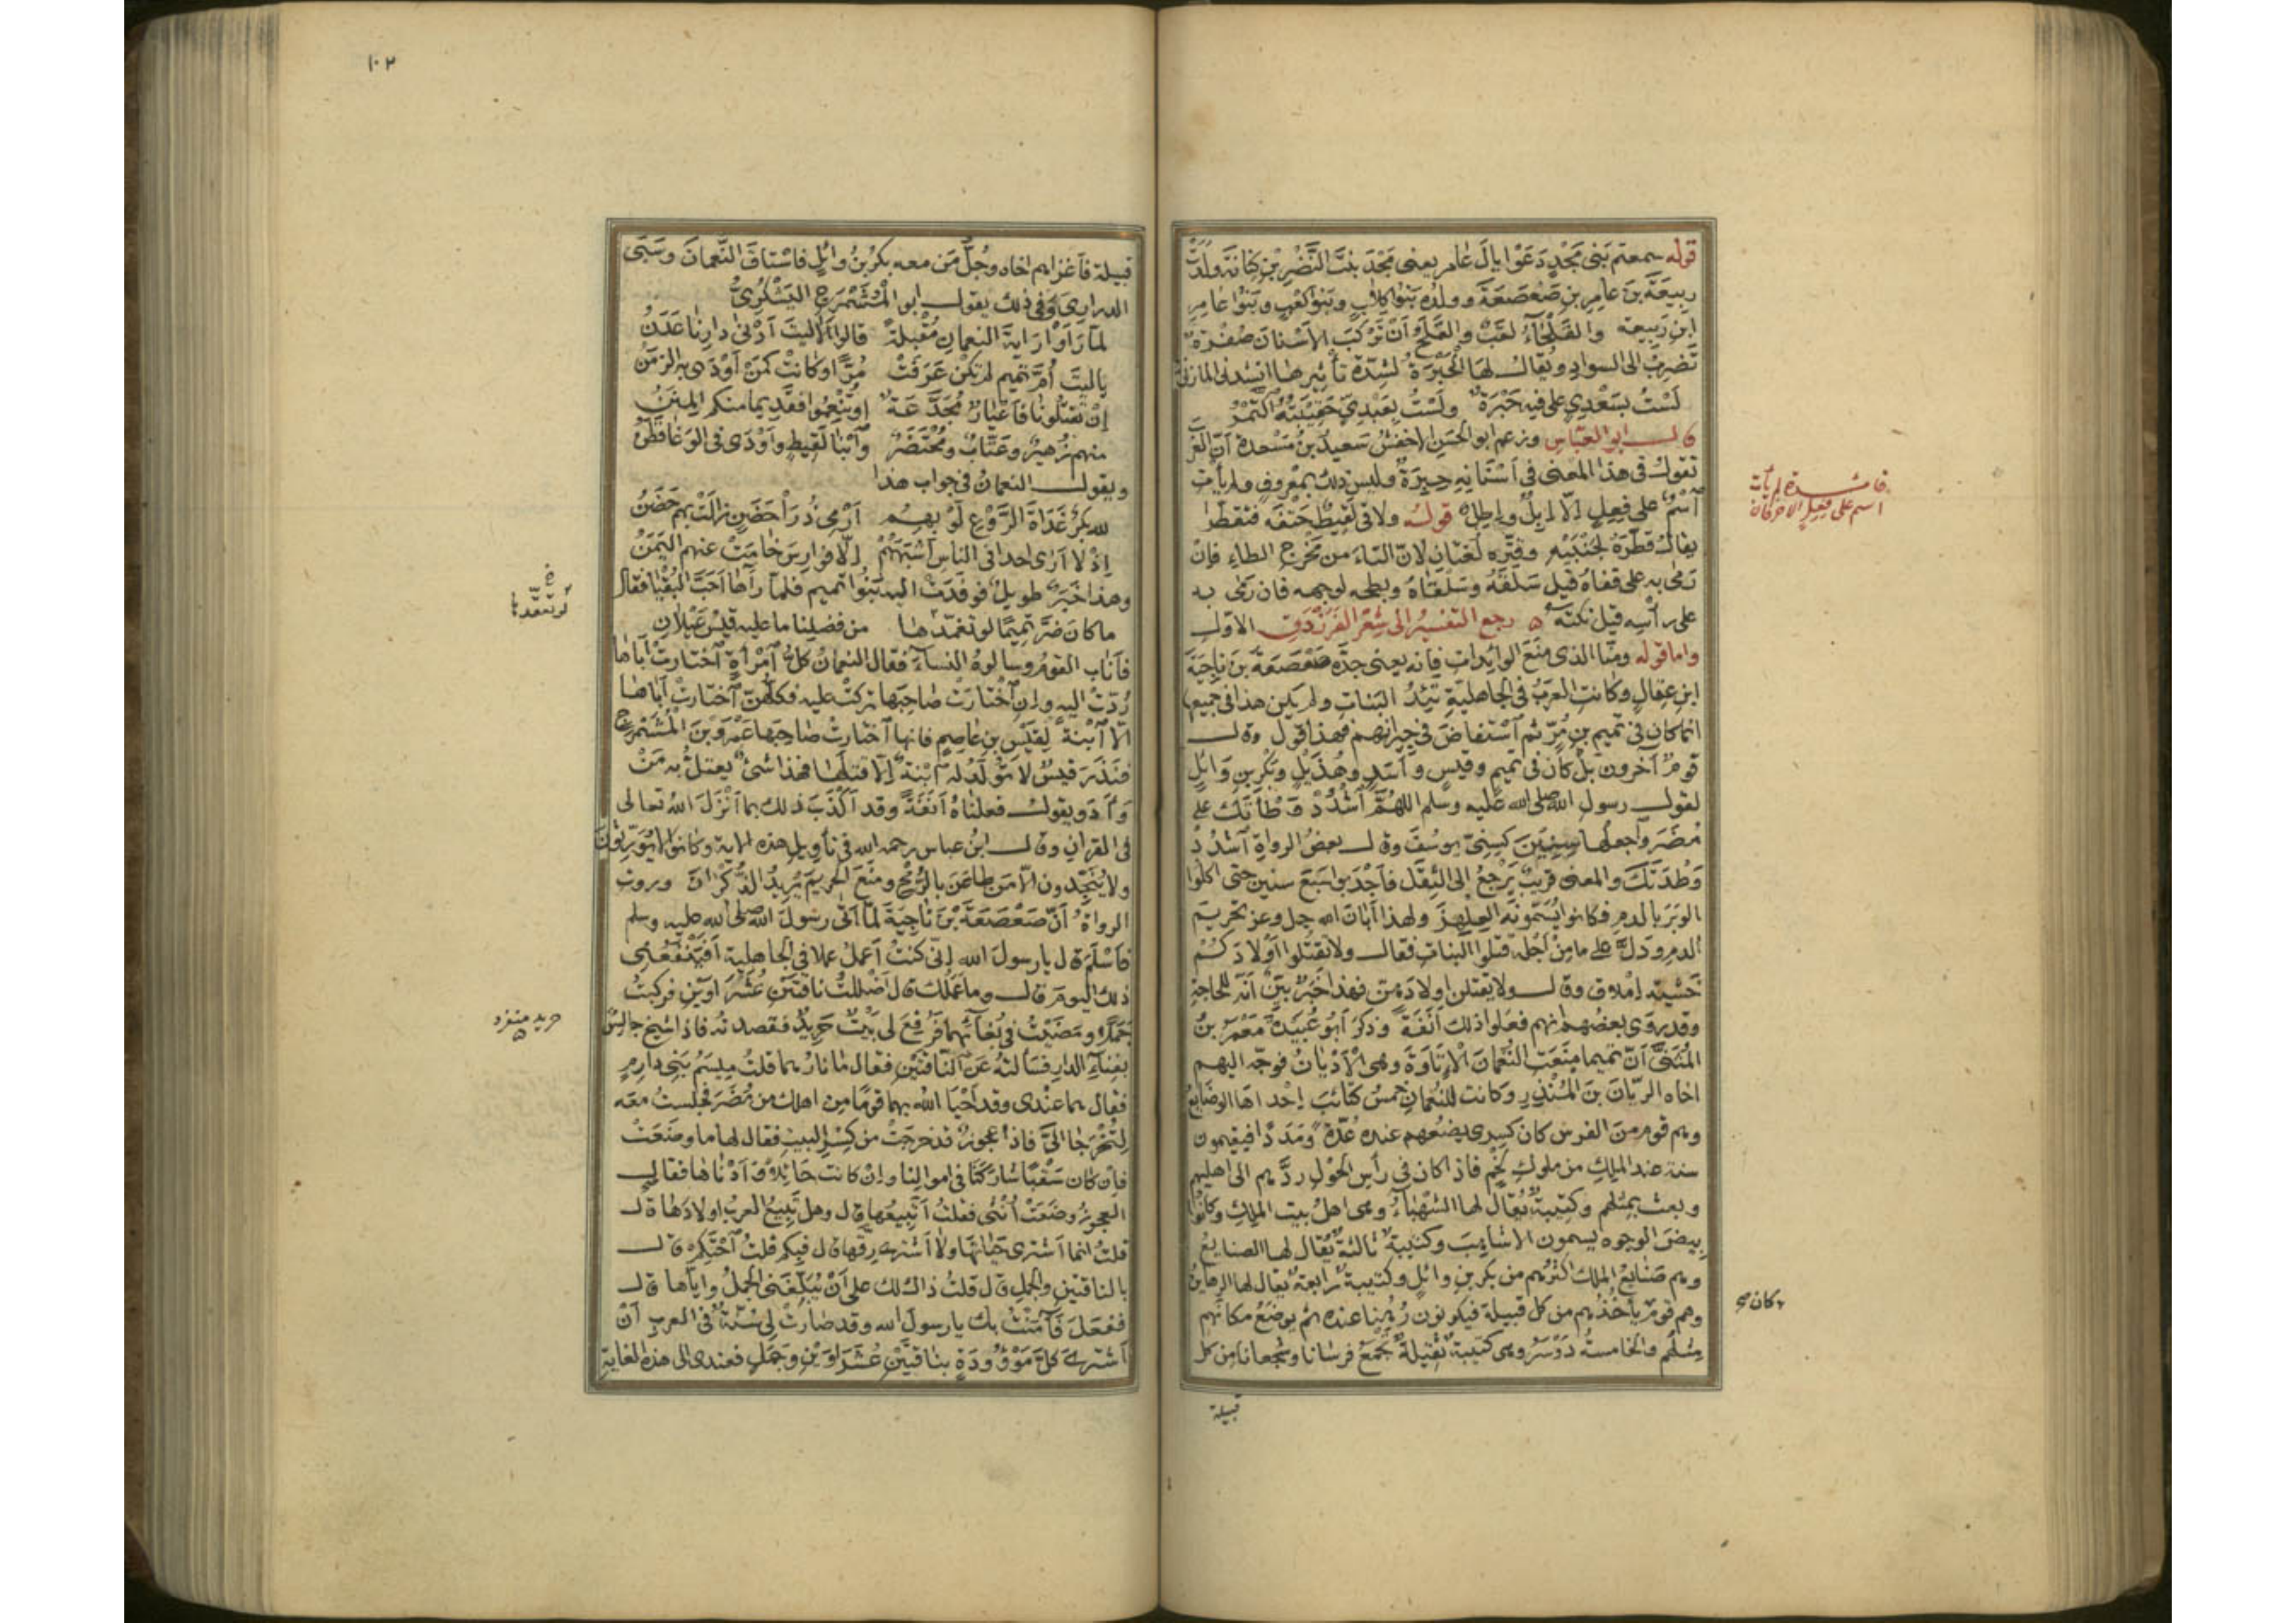 قوله سمعتم بَنِي مَجْدٍ دَعَوْا يالَ عَامر يعني مَجْدَ بنتَ النَّضْرِ بْنِ كِنَانَةَ وَلَدَتْ
رَبِيعَةَ بنَ عَامِرِ بنِ صَعْصَعَةَ وولدُه بَنُوا كِلَابٍ وبَنُوا كَعْبٍ وبَنُوا عَامِرِ
ابنِ رَبِيعة والقَلْحَاءُ لقَبٌ والقَلَحُ أنْ تَرْكَبَ الاَسْنانَ صُفْرَةٌ
تَضرِبُ الى السوادِ ويُقالُ لها الحَبْرَةُ لشِدَّةِ تأثيرها انشدني المازني
لَسْتُ بسَعْدِيٍّ على فِيهِ حَبْرَةٌ ولَسْتُ بِعَبْدِيٍّ حَقِيبَتُهُ التَّمْرُ
قال ابو العَبَّاس وزعم ابو الحَسَنِ الاخفشُ سَعيدُ بنُ مَسْعدة أنّ العَرَبَ
تقولُ في هذا المعنى في اَسْنَانِهِ حِبِرَةٌ وليس ذلك بمَعْروفٍ ولم يأتِ
اسْمٌ على فِعِلٍ اِلّا اِبِلٌ واِطِلٌ قولُه ولاقى لَقِيطٌ حَتْفَه فتقَطَّرا
يقالُ قَطَّرَهُ لجَنْبَيْه وقَتَّره لُغَتانِ لأنّ التاءَ من مَخْرجِ الطاءِ فإنْ
رَمى به على قفاهُ قيل سَلَقَهُ وسَلْقَاهُ وبطحه لوجهه فان رَمَى به
على رأسِه قيل نكتَه رجع التفسيرُ الى شِعْرِ الفَرَزْدَقِ الاوّلِ
واما قوله ومِنَّا الذى مَنَعَ الوائِدَاتِ فإنه يعنى جدَّه صَعْصَعَةَ بنَ نَاجِيَةَ
ابنِ عِقَالٍ وكانتِ العَرَبُ في الجاهليّةِ تَئِدُ البَنَاتِ ولم يكن هذا في جميعها
انما كان في تَميمِ بنِ مُرٍّ ثم اسْتَفاضَ في جيرانِهم فهذا قولٌ وقال
قومٌ آخرون بل كان في تميمٍ وقَيسٍ وأسَدٍ وهُذَيْلٍ وبَكْرِ بنِ وَائِلٍ
لقول رسولِ الله صلى الله عليه وسلم اللهُمَّ اشْدُدْ وَطْأَتَكَ على
مُضَرَ واجعلها سِنِينَ كسِنِي يوسُفَ وقال بعضُ الرواةِ اشْدُدْ
وَطْدَتَكَ والمعنى قريبٌ يَرْجعُ الى الثِقَلِ فاَجْدَبوا سَبْعَ سنين حتى اكلوا
الوَبَرَ بالدمِ فكانوا يُسَمّونَه العِلْهِزَ ولهذا اَبَانَ الله جل وعز تحريمَ
الدم ودَلَّ على ما مِنْ اَجْلِه قتلوا البناتِ فقال ولا تقتُلوا اَوْلادَكُمْ
خَشْيةَ اِمْلاقٍ وقال ولا يقتلن اولادَهنّ فهذا خَبَرٌ بَيّنٌ اَنّه للحاجةِ
وقد روى بعضُهم انهم فعلوا ذلك اَنَفَةً وذكَرَ اَبُو عُبَيدةَ مَعْمَرُ بنُ
المُثَنَّى اَنّ تميما منَعَتِ النُعْمَانَ الاِتَاوَةَ وهى الاَدْيَانُ فوجّه اليهم
اخاه الرَّيَّانَ بنَ المُنذِرِ وكانت للنُعْمانِ خمسُ كتائبَ اِحْداها الوضَائعُ
وهم قومٌ من الفُرسِ كان كِسرى يضَعُهم عنده عُدّةً ومَدَدًا فيقيمون
سنة عند الملِكِ من ملوكِ لَخْمٍ فاذا كان في رأسِ الحَوْلِ ردَّهم الى اهليهم
وبعث بمِثْلِهم وكتيبةٌ يُقالُ لها الشَّهْبَاءُ وهى اهلُ بيتِ الملِكِ وكانُوا
بِيضَ الوجوه يسمون الاشاهِبَ وكتيبةٌ ثالثةٌ يُقالُ لها الصنايعُ
وهم صَنَائعُ الملك اكثرُهم من بكرِ بنِ وائلٍ وكتيبةٌ رابعةٌ يقال لها الرهاينُ
وهم قومٌ يأخُذُهم من كل قبيلةٍ فيكونون رُهُنا عنده ثم يوضَعُ مكانَهم
مِثلُهم والخامسةُ دَوْسَرُ وهى كتيبةٌ ثقيلةٌ تَجْمَعُ فرسانا وشُجعانا مِن كل
قبيلة
فائدة لم يأت
اسم على فِعِلٍ الا حرفان
كان
١٠٢
قبيلة فاَغزاهم اخاه وجُلُّ مَن معه بكرُ بنُ وائلٍ فاسْتاقَ النَّعَمَ وسَبَى
الذراري وفي ذلك يقول ابو المُشَمْرَجِ اليَشْكُرِيُّ
لمّا رَاَوْا رَايةَ النعمانِ مُقْبِلَةً قالوا اَلَا ليتَ اَدْنَى دارِنا عَدَنُ
ياليتَ اُمَّ تميمٍ لم تكنْ عَرَفَتْ مُرًّا وكانتْ كمَنْ اَوْدَى به الزمَنُ
اِنْ تقتلونا فاَعْيارٌ مُجَدَّعَةٌ او تُنْعِموا فقديما منكم المِنَنُ
منهم زُهيرٌ وعَتَّابٌ ومُحْتَضَرٌ وابْنَا لَقِيطٍ واَوْدَى في الوَغا قَطَنُ
ويقول النعمانُ في جواب هذا
لله بكرٌ غَدَاةَ الرَّوْعِ لَوْ بِهِم اَرْمِي ذُرَا حَضَنٍ زالتْ بهم حَضَنُ
اِذْ لا اَرَى احدا في الناس اَشْبَهَهُمْ اِلّا فوارِسَ خامَتْ عنهم اليَمَنُ
وهذا خَبَرٌ طويلٌ فوفَدَتْ اليه بَنُوا تميمٍ فلمّا رآها اَحَبَّ البُقْيا فقال
ما كان ضَرَّ تميمًا لو تغمّدَها من فضلِنا ما عليه قيسُ عَيْلانِ
فاَنَاب القومُ وسألوهُ النساءَ فقال النعمانُ كلُّ امْرأةٍ اخْتارتْ اَبَاها
رُدّتْ اليه واِنِ اخْتَارَتْ صَاحِبَها تُركتْ عليه فكلُّهنّ اختَارتْ اَباها
اِلّا ابْنَةً لِقَيْسِ بنِ عَاصِمٍ فانها اختارتْ صاحِبَها عَمْرَو بنَ المُشَمْرَجِ
فنَذَرَ قيسٌ لا تُولَدُ له ابْنةٌ اِلّا قتلها فهذا شئٌ يعتلُّ به مَنْ
وَاَدَ ويقول فعلناهُ اَنَفَةً وقد اَكْذَبَ ذلك بما اَنْزَلَ اللهُ تعالى
في القرآنِ وقال ابنُ عباس رحمه الله في تأويلِ هذه الآيةِ وكانوا لا يُوَرّثونَ
ولا يُنْجِدون الّا مَن طاعَنَ بالرُّمْحِ ومنَعَ الحَرِيمَ يُرِيدُ الذُكْرانَ وروتِ
الرواةُ اَنّ صَعْصَعَةَ بْنَ نَاجِيَةَ لَمَّا اَتَى رسولَ الله صلى الله عليه وسلم
فاَسْلَمَ قال يا رسولَ الله اِنّى كنتُ اَعملُ عملا في الجاهليةِ اَفَيَنْفَعُنِي
ذلك اليومَ قال وما عَمَلُك قال اَضْلَلتُ ناقتَيْنِ عُشَرَاوَيْنِ فركِبتُ
جَمَلًا ومَضَيْتُ في بُغَائِهما فرُفِعَ لى بَيْتٌ حَرِيدٌ فقصدتُه فاذا شيخ جالِسٌ
بفِنَاءِ الدارِ فسَألتُهُ عَنِ النّاقتَيْنِ فقال ما نَارُهما قلتُ مِيسَمُ بَنِي دارِمٍ
فقال هما عنْدى وقد اَحْيَا اللهُ بهما قومًا مِن اهلك من مُضَرَ فجلستُ معه
لِتُخْرَجَا اِلَيَّ فاذا عجوزٌ قد خرجتْ من كِسْرِ البيتِ فقال لها ما وضَعَتْ
فاِن كان سَقْبًا شَارَكَنَا في اموالِنا واِنْ كانت حائِلًا وَأَدْنَاها فقالتِ
العجوزُ وضَعَتْ اُنْثَى فقلتُ اَتَبِيعُها قال وهل تَبِيعُ العربُ اولادَها قال
قلتُ انما اَشترى حَيَاتَها ولا اَشترِى رِقَّها قال فبِكم قلتُ احْتَكِمْ قال
بالناقتينِ والجملِ قال قلتُ ذاك لك على اَنْ يُبَلِّغَنِي الجملُ وايّاها قال
ففَعَلَ فآمَنْتُ بك يا رسولَ الله وقد صَارتْ لِى سُنّةٌ في العربِ اَنْ
اَشترِىَ كلَّ مَوْءُودَةٍ بنَاقتَيْنِ عُشَرَاوَيْنِ وجَمَلٍ فعندى الى هذه الغايةِ
حريد منفرد